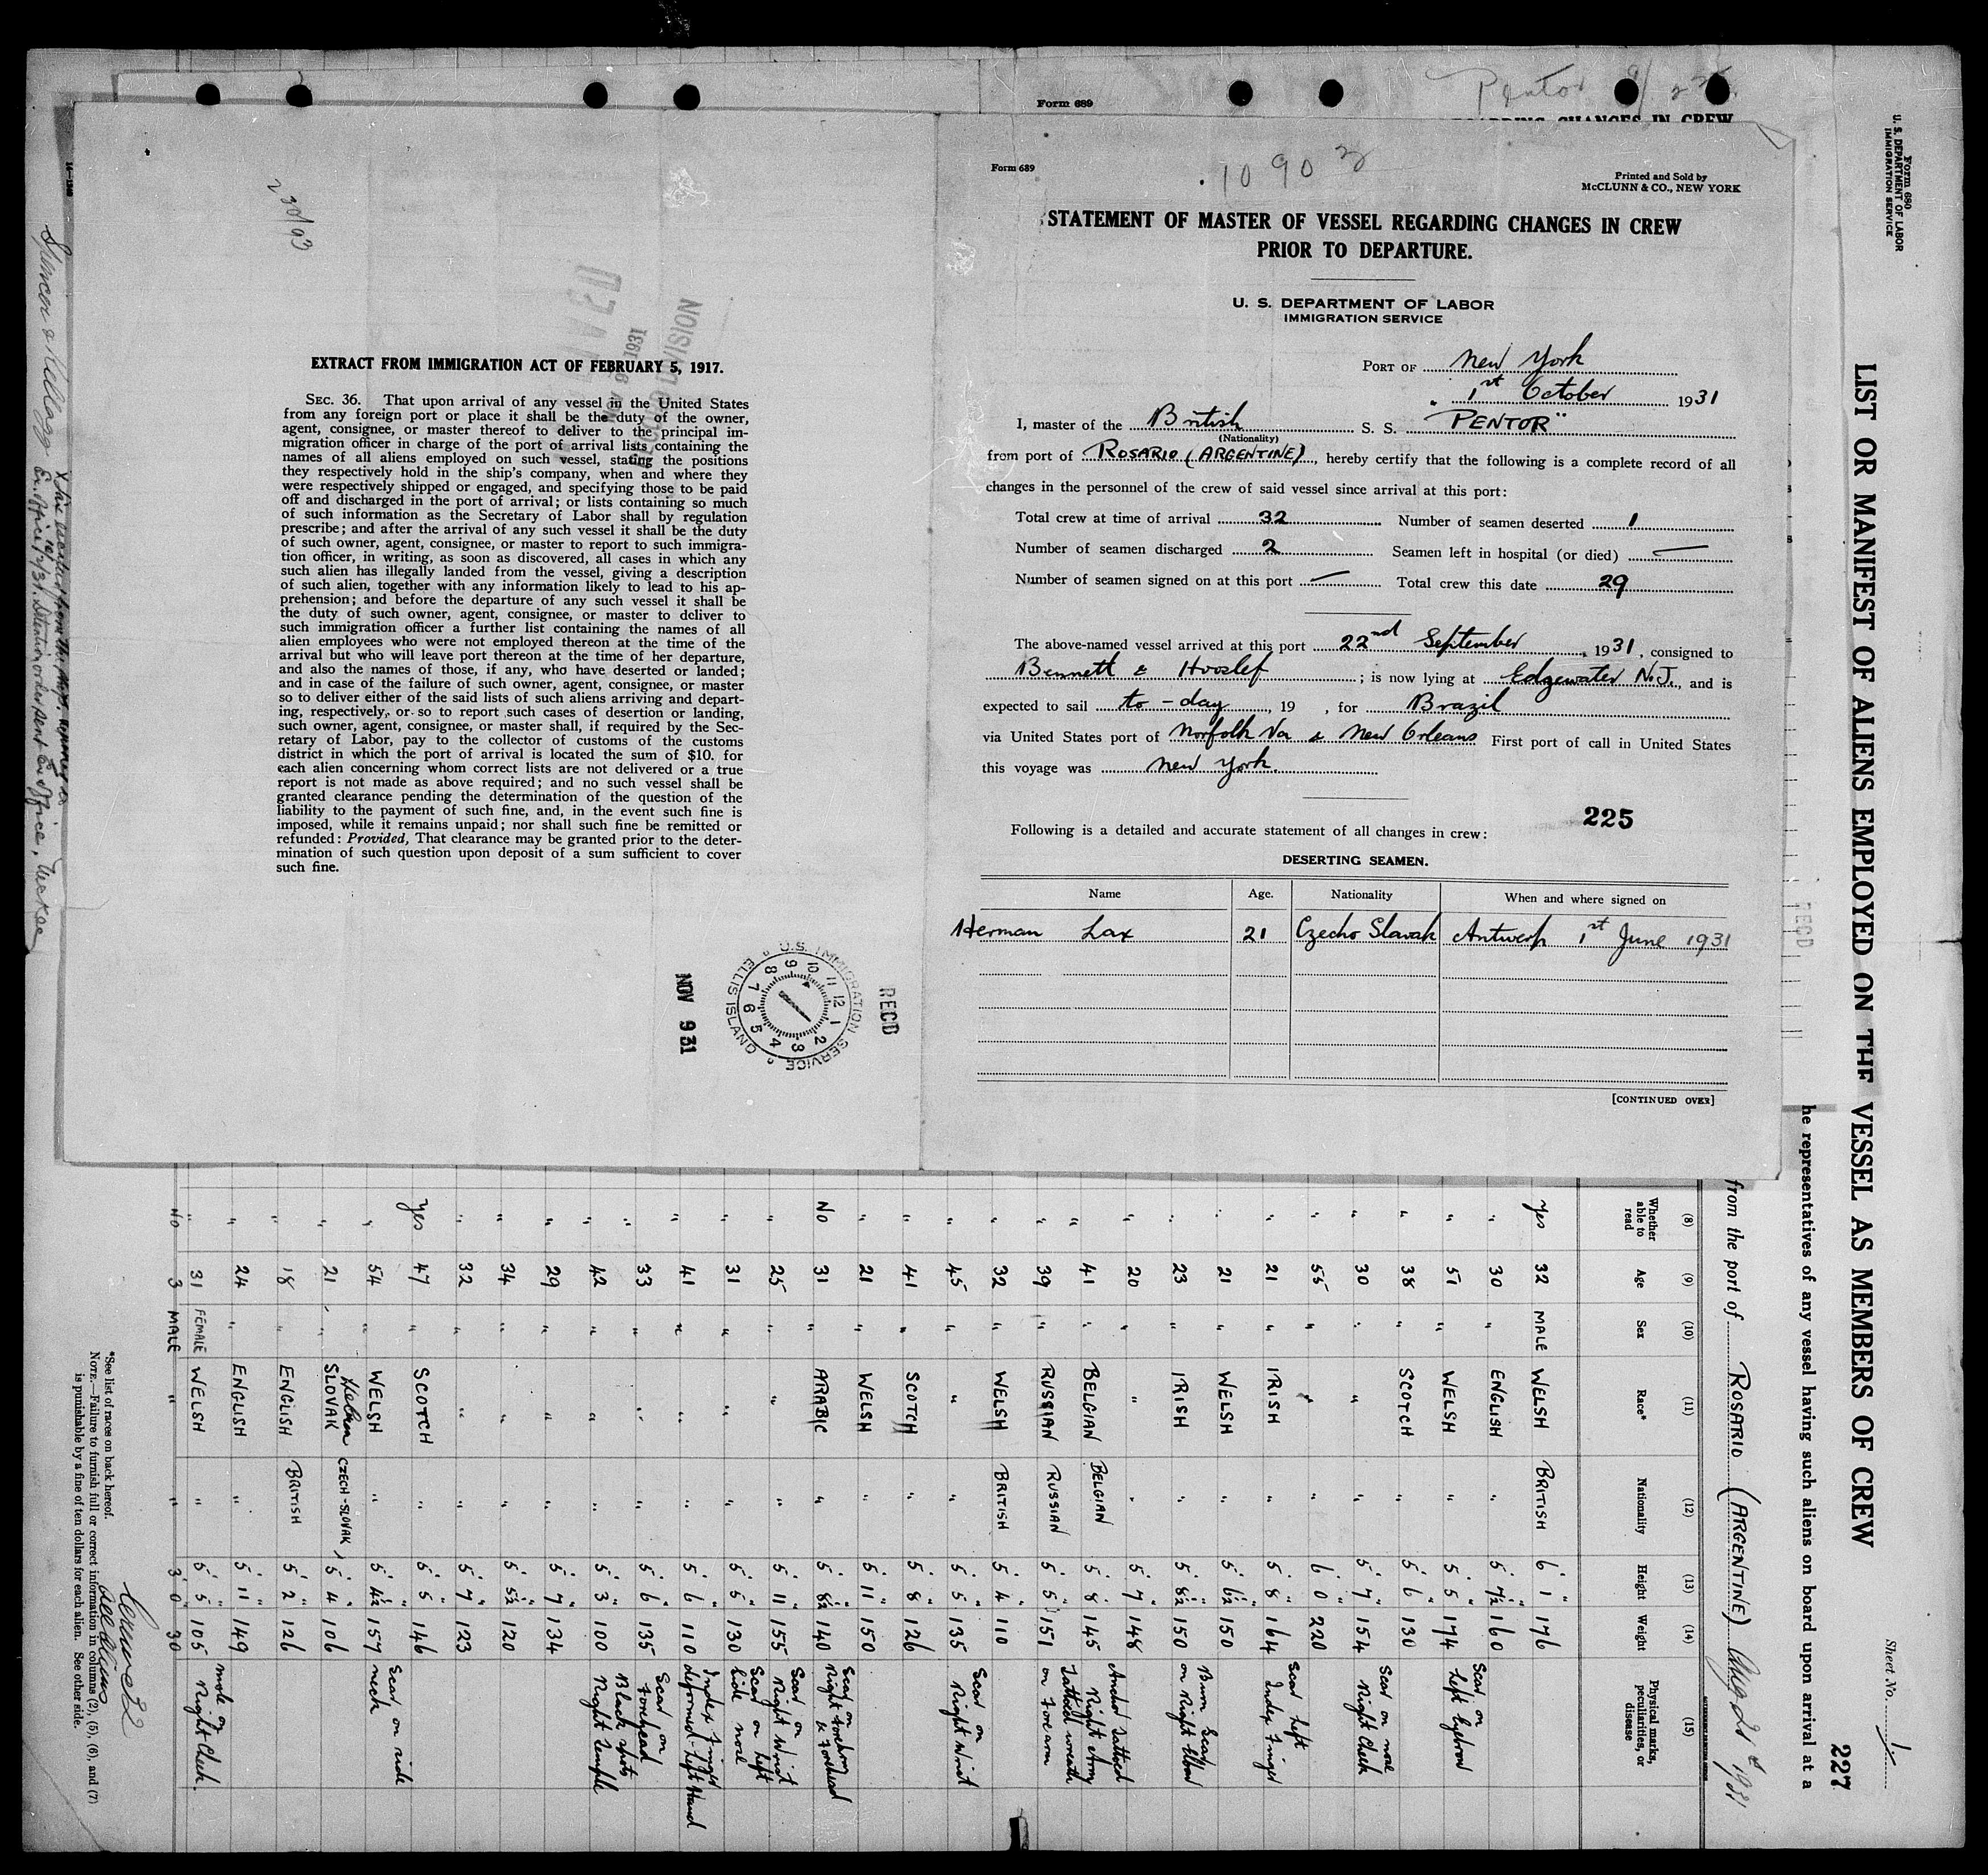 Form 689
Pentor
Form 689
10903
Printed and Sold by
McCLUNN & CO., NEW YORK
STATEMENT OF MASTER OF VESSEL REGARDING CHANGES IN CREW
PRIOR TO DEPARTURE.
U. S. DEPARTMENT OF LABOR
IMMIGRATION SERVICE
PORT OF New York
" 1st October 1931
I, master of the British S. S. "PENTOR"
(Nationality)
from port of ROSARIO (ARGENTINE), hereby certify that the following is a complete record of all
changes in the personnel of the crew of said vessel since arrival at this port:
Total crew at time of arrival 32 Number of seamen deserted 1
Number of seamen discharged 2 Seamen left in hospital (or died) —
Number of seamen signed on at this port — Total crew this date 29
The above-named vessel arrived at this port 22nd September, 1931, consigned to
Bennett & ; is now lying at Edgewater N.J., and is
expected to sail to-day, 19 , for Brazil
via United States port of Norfolk Va & New Orleans First port of call in United States
this voyage was New York.
225
Following is a detailed and accurate statement of all changes in crew:
DESERTING SEAMEN.
Name Age. Nationality When and where signed on
Herman Lax 21 Czecho Slovak Antwerp 1st June 1931
[CONTINUED OVER]
EXTRACT FROM IMMIGRATION ACT OF FEBRUARY 5, 1917.
SEC. 36. That upon arrival of any vessel in the United States
from any foreign port or place it shall be the duty of the owner,
agent, consignee, or master thereof to deliver to the principal im-
migration officer in charge of the port of arrival lists containing the
names of all aliens employed on such vessel, stating the positions
they respectively hold in the ship's company, when and where they
were respectively shipped or engaged, and specifying those to be paid
off and discharged in the port of arrival; or lists containing so much
of such information as the Secretary of Labor shall by regulation
prescribe; and after the arrival of any such vessel it shall be the duty
of such owner, agent, consignee, or master to report to such immigra-
tion officer, in writing, as soon as discovered, all cases in which any
such alien has illegally landed from the vessel, giving a description
of such alien, together with any information likely to lead to his ap-
prehension; and before the departure of any such vessel it shall be
the duty of such owner, agent, consignee, or master to deliver to
such immigration officer a further list containing the names of all
alien employees who were not employed thereon at the time of the
arrival but who will leave port thereon at the time of her departure,
and also the names of those, if any, who have deserted or landed;
and in case of the failure of such owner, agent, consignee, or master
so to deliver either of the said lists of such aliens arriving and depart-
ing, respectively, or so to report such cases of desertion or landing,
such owner, agent, consignee, or master shall, if required by the Sec-
retary of Labor, pay to the collector of customs of the customs
district in which the port of arrival is located the sum of $10. for
each alien concerning whom correct lists are not delivered or a true
report is not made as above required; and no such vessel shall be
granted clearance pending the determination of the question of the
liability to the payment of such fine, and, in the event such fine is
imposed, while it remains unpaid; nor shall such fine be remitted or
refunded: Provided, That clearance may be granted prior to the deter-
mination of such question upon deposit of a sum sufficient to cover
such fine.
NOV 9 1931
RECORD DIVISION
U.S. IMMIGRATION SERVICE
ELLIS ISLAND
NOV 9 31
REC'D
Form 680
U. S. DEPARTMENT OF LABOR
IMMIGRATION SERVICE
Sheet No. 1
227
LIST OR MANIFEST OF ALIENS EMPLOYED ON THE VESSEL AS MEMBERS OF CREW
he representatives of any vessel having such aliens on board upon arrival at a
from the port of ROSARIO (ARGENTINE) Aug 21st 1931
(8) (9) (10) (11) (12) (13) (14) (15)
Whether able to read Age Sex Race* Nationality Height Weight Physical marks, peculiarities, or disease
Yes 32 MALE WELSH BRITISH 6' 1" 176
" 30 " ENGLISH " 5' 7½" 160
" 51 " WELSH " 5' 5" 174 Scar on left Eyebrow
" 38 " SCOTCH " 5' 6" 130
" 30 " " " 5' 7" 154 Scar on nose Right Cheek
" 55 " " " 6' 0" 220
" 21 " IRISH " 5' 8" 164 Scar left Index Finger
" 21 " WELSH " 5' 6½" 150
" 23 " IRISH " 5' 8½" 150 Burn Scar on Right Elbow
" 20 " " " 5' 7" 148 Anchor Tattoed
" 41 " BELGIAN BELGIAN 5' 8" 145 Right Army
" 39 " RUSSIAN RUSSIAN 5' 5" 151 Tattoed wreath on Forearm
" 32 " WELSH BRITISH 5' 4" 110
" 45 " " " 5' 5" 135 Scar on Right Wrist
" 41 " SCOTCH " 5' 8" 126
" 21 " WELSH " 5' 11" 150
No 31 " ARABIC " 5' 8½" 140 Scar on Right forearm & Forehead
" 25 " " " 5' 11" 155 Scar on Right Wrist
" 31 " " " 5' 5" 130 Scar on left side nose
" 41 " " " 5' 6" 110 Index finger deformed - left Hand
" 33 " " " 5' 6" 135 Scar on Forehead
" 42 " " " 5' 3" 100 Black spots Right Temple
" 29 " " " 5' 7" 134
" 34 " " " 5' 5½" 120
" 32 " " " 5' 7" 123
Yes 47 " SCOTCH " 5' 5" 146
" 54 " WELSH " 5' 4½" 157 Scar on side neck
" 21 " SLOVAK Hebrew CZECH-SLOVAK 5' 4" 106
" 18 " ENGLISH BRITISH 5' 2" 126
" 24 " ENGLISH " 5' 11" 149
" 31 FEMALE WELSH " 5' 5" 105 mole on Right Cheek.
No 3 MALE " " 3' 0" 30
*See list of races on back hereof.
NOTE.—Failure to furnish full or correct information in columns (2), (5), (6), and (7)
is punishable by a fine of ten dollars for each alien. See other side.